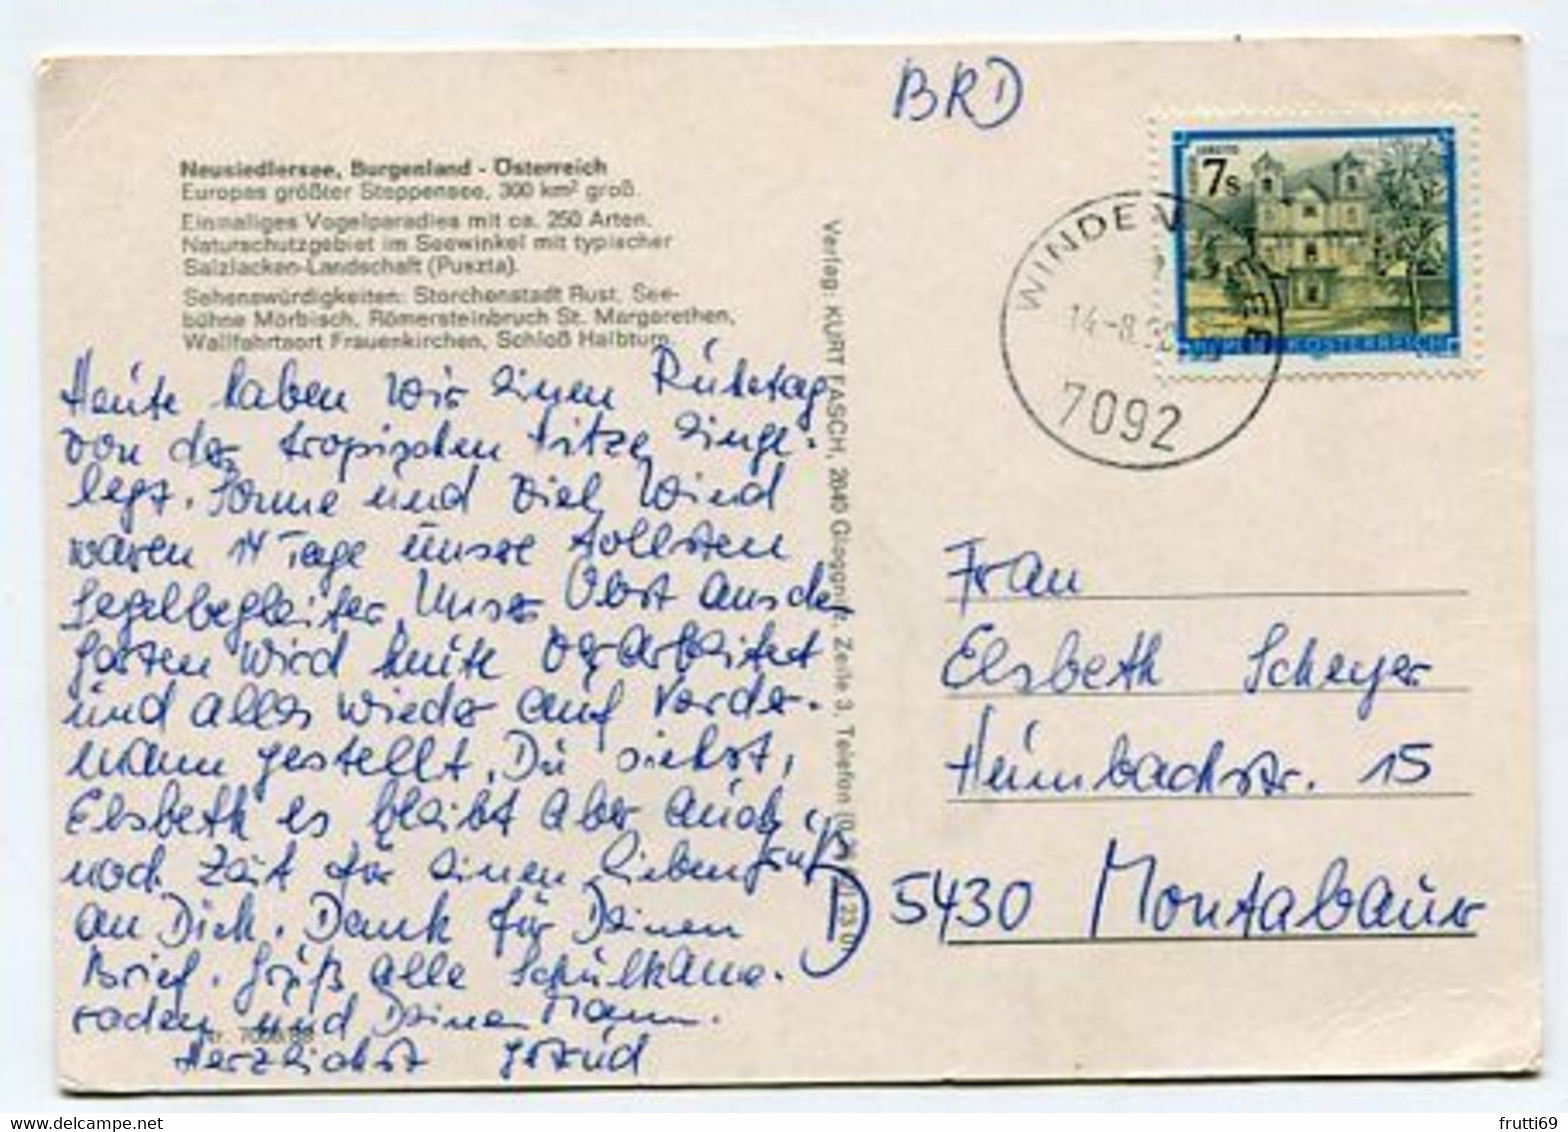 BRD
Neusiedlersee, Burgenland - Österreich
Europas größter Steppensee, 300 km² groß.
Einmaliges Vogelparadies mit ca. 250 Arten.
Naturschutzgebiet im Seewinkel mit typischer
Salzlacken-Landschaft (Puszta).
Sehenswürdigkeiten: Storchenstadt Rust, See-
bühne Mörbisch, Römersteinbruch St. Margarethen,
Wallfahrtsort Frauenkirchen, Schloß Halbturn
Heute haben wir einen Ruhetag
von der tropischen Hitze einge-
legt. Sonne und viel Wind
waren 14 Tage unsere tollsten
Segelbegleiter. Unser Obst aus dem
Garten wird heute verarbeitet
und alles wieder auf Vorder-
mann gestellt. Du siehst,
Elsbeth es bleibt aber auch
noch Zeit für einen lieben Gruß
an Dich. Dank für Deinen
Brief. Grüß alle Schulkame-
raden und Deinen Mann.
Herzlichst Gerúd
Verlag: KURT FASCH, 2640 Gloggnitz, Zeile 3, Telefon
7s
ÖSTERREICH
WINDEN
SEE
14.-8.
7092
Frau
Elsbeth Scheyer
Heimbachstr. 15
D 5430 Montabaur
frutti69